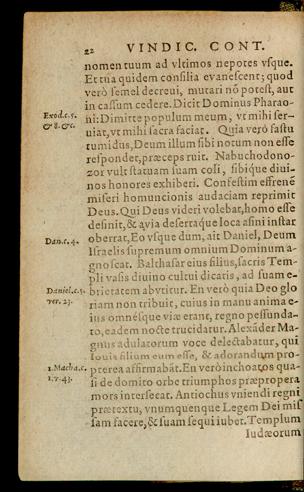 22 VINDIC. CONT.
nomen tuum ad vltimos nepotes vsque.
Et tua quidem consilia evanescent; quod
verò semel decreui, mutari nō potest, aut
in cassum cedere. Dicit Dominus Pharao-
Exod.c.5.
& 8. &c.
ni: Dimitte populum meum, vt mihi ser-
uiat, vt mihi sacra faciat. Quia verò fastu
tumidus, Deum illum sibi notum non esse
respondet, præceps ruit. Nabuchodono-
zor vult statuam suam coli, sibique diui-
nos honores exhiberi. Confestim effrenē
miseri homuncionis audaciam reprimit
Deus. Qui Deus videri volebat, homo esse
desinit, & avia desertaque loca asini instar
Dan.c.4.
oberrat, Eo vsque dum, ait Daniel, Deum
Israelis supremum omnium Dominum a-
gnoscat. Balthasar eius filius, sacris Tem-
pli vasis diuino cultui dicatis, ad suam e-
Daniel.c.5.
ver. 23.
brietatem abvtitur. En verò quia Deo glo
riam non tribuit, cuius in manu anima e-
ius omnésque viæ erant, regno pessunda-
to, eadem nocte trucidatur. Alexāder Ma-
gnus adulatorum voce delectabatur, qui
Iouis filium eum esse, & adorandum pro-
1.Macha.c.
1.v.43.
pterea affirmabāt. En verò inchoatos qua-
si de domito orbe triumphos præpropera
mors intersecat. Antiochus vniendi regni
prætextu, vnumquenque Legem Dei mis
sam facere, & suam sequi iubet. Templum
Iudæorum